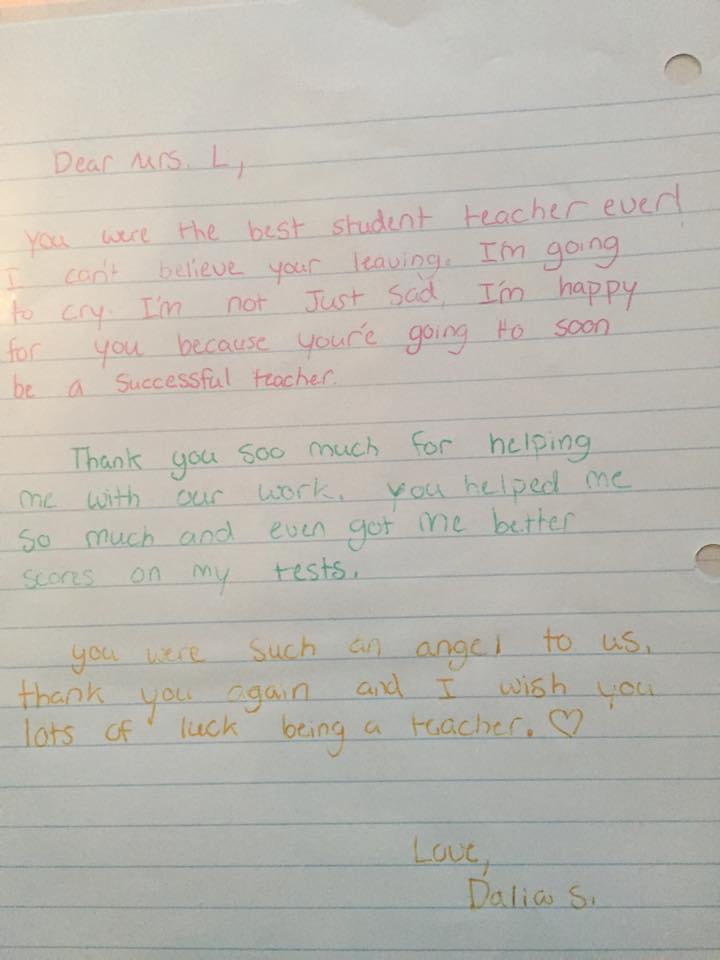 Dear Mrs. L,
You were the best student teacher ever!
I can't believe your leaving. I'm going
to cry. I'm not Just sad, I'm happy
for you because your'e going to soon
be a successful teacher.
Thank you soo much for helping
me with our work. you helped me
so much and even got me better
scores on my tests.
you were such an angel to us,
thank you again and I wish you
lots of luck being a teacher. ♡
Love,
Dalia S.